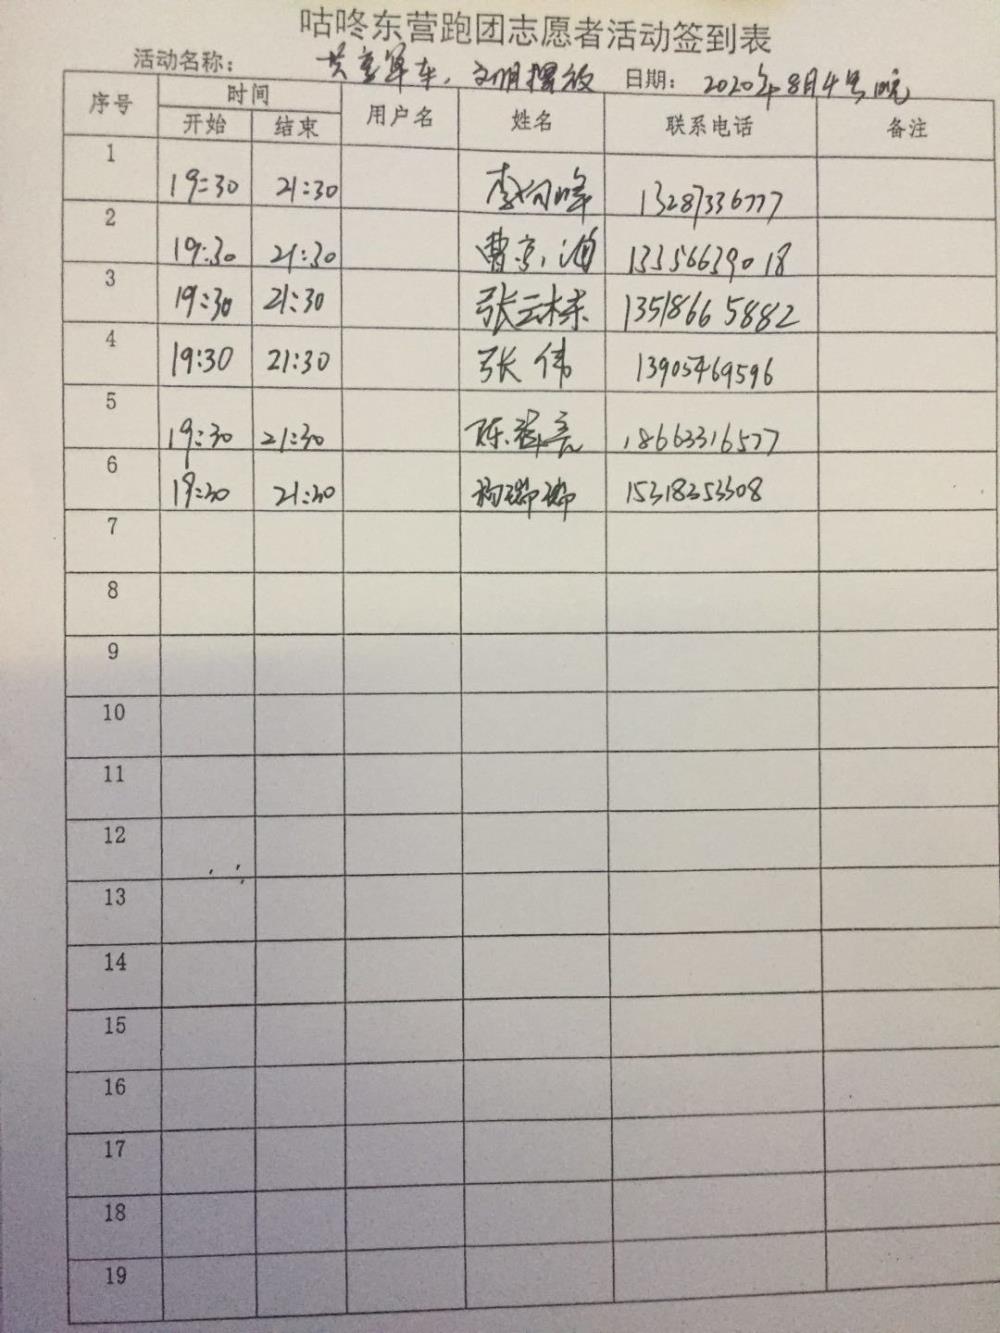 咕咚东营跑团志愿者活动签到表
活动名称： 共享单车，文明摆放 日期： 2020年8月4号晚
序号 时间 用户名 姓名 联系电话 备注
开始 结束
1 19:30 21:30 李向峰 13287336777
2 19:30 21:30 曹京 13356639018
3 19:30 21:30 张云栋 13518665882
4 19:30 21:30 张伟 13905469596
5 19:30 21:30 陈 亮 18663316577
6 19:30 21:30 15318353308
7
8
9
10
11
12
13
14
15
16
17
18
19